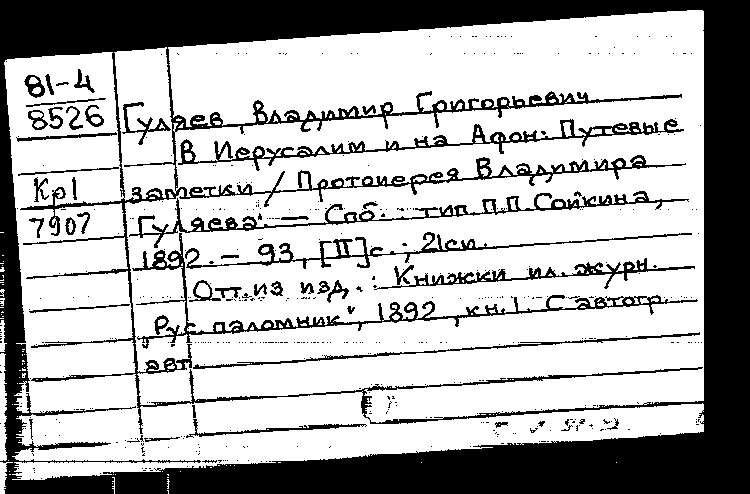 81-4
8526
Кр1
7907
Гуляев, Владимир Григорьевич
В Иерусалим и на Афон: Путевые
заметки / Протоиерея Владимира
Гуляева. — Спб.: тип. П.П. Сойкина,
1892. — 93, [II] с.; 21см.
Отт. из изд.: Книжки ил. журн.
„Рус. паломник", 1892, кн. 1. С автогр.
авт.